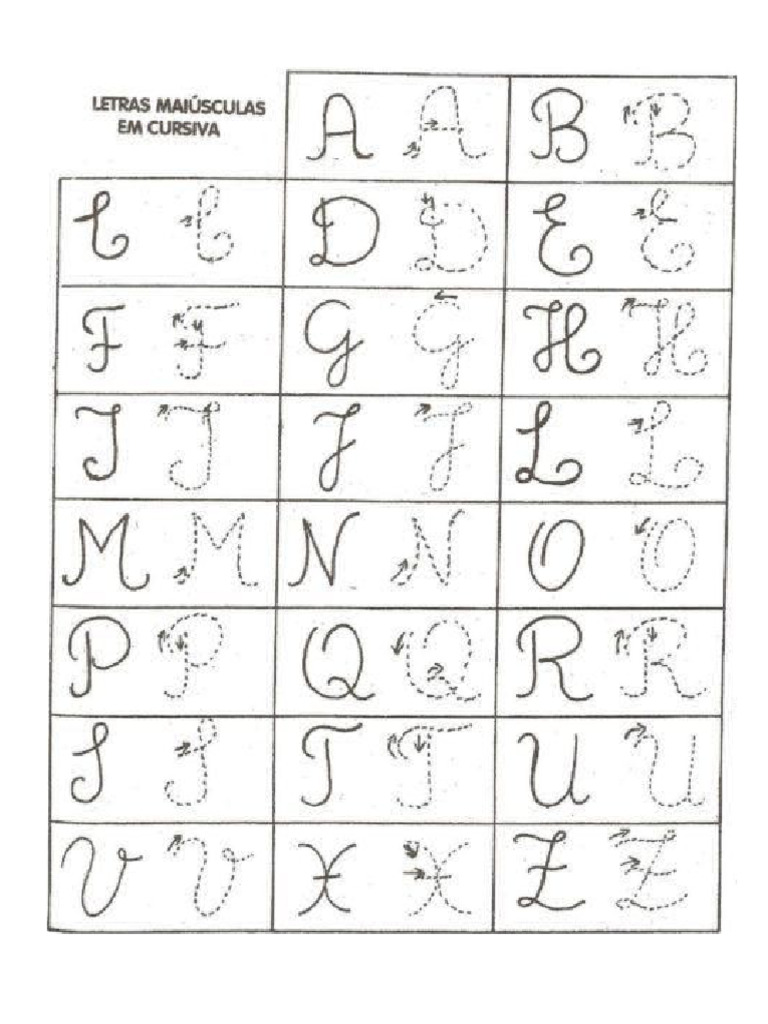 LETRAS MAIÚSCULAS
EM CURSIVA
A A B B
C C D D E E
F F G G H H
I I J J L L
M M N N O O
P P Q Q R R
S S T T U U
V V X X Z Z